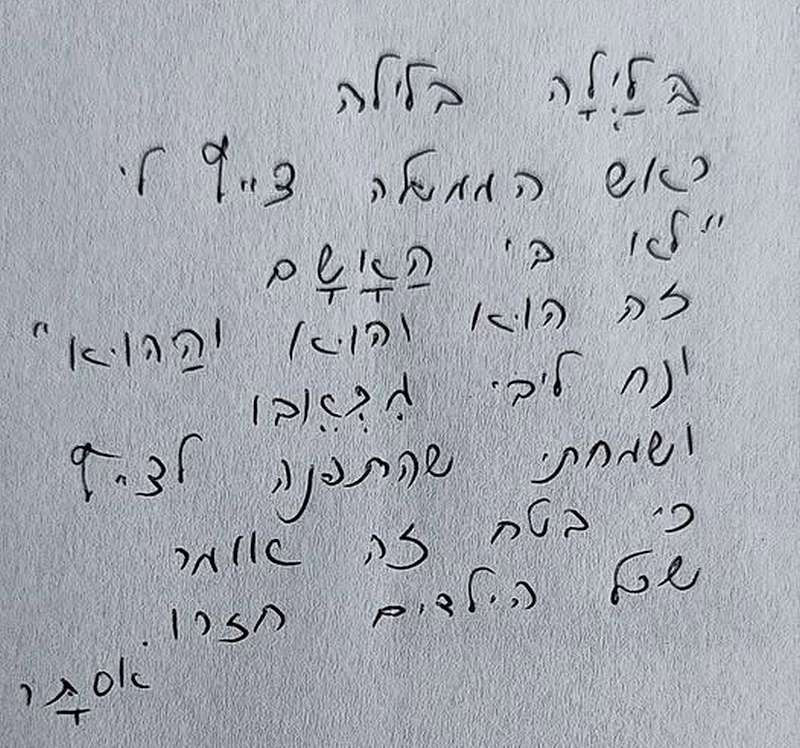 בַּלַּיְלָה בלילה
ראש הממשלה צייף לי
"לא בי הַאָשָם
זה הוא והוא וְהַהוא"
ונח ליבי מִכְּאֵובו
ושמחתי שהתפנה לצייף
כי בטח זה אומר
שכל הילדים חזרו
אסתָר